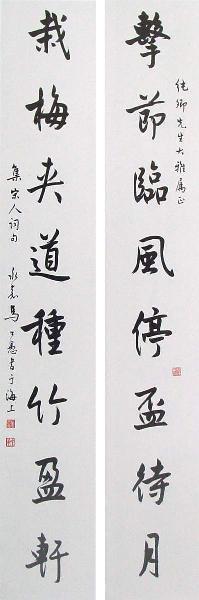 擊節臨風停盃待月
純卿先生大雅屬正
栽梅夾道種竹盈軒
集宋人詞句 永嘉馬公愚書于海上